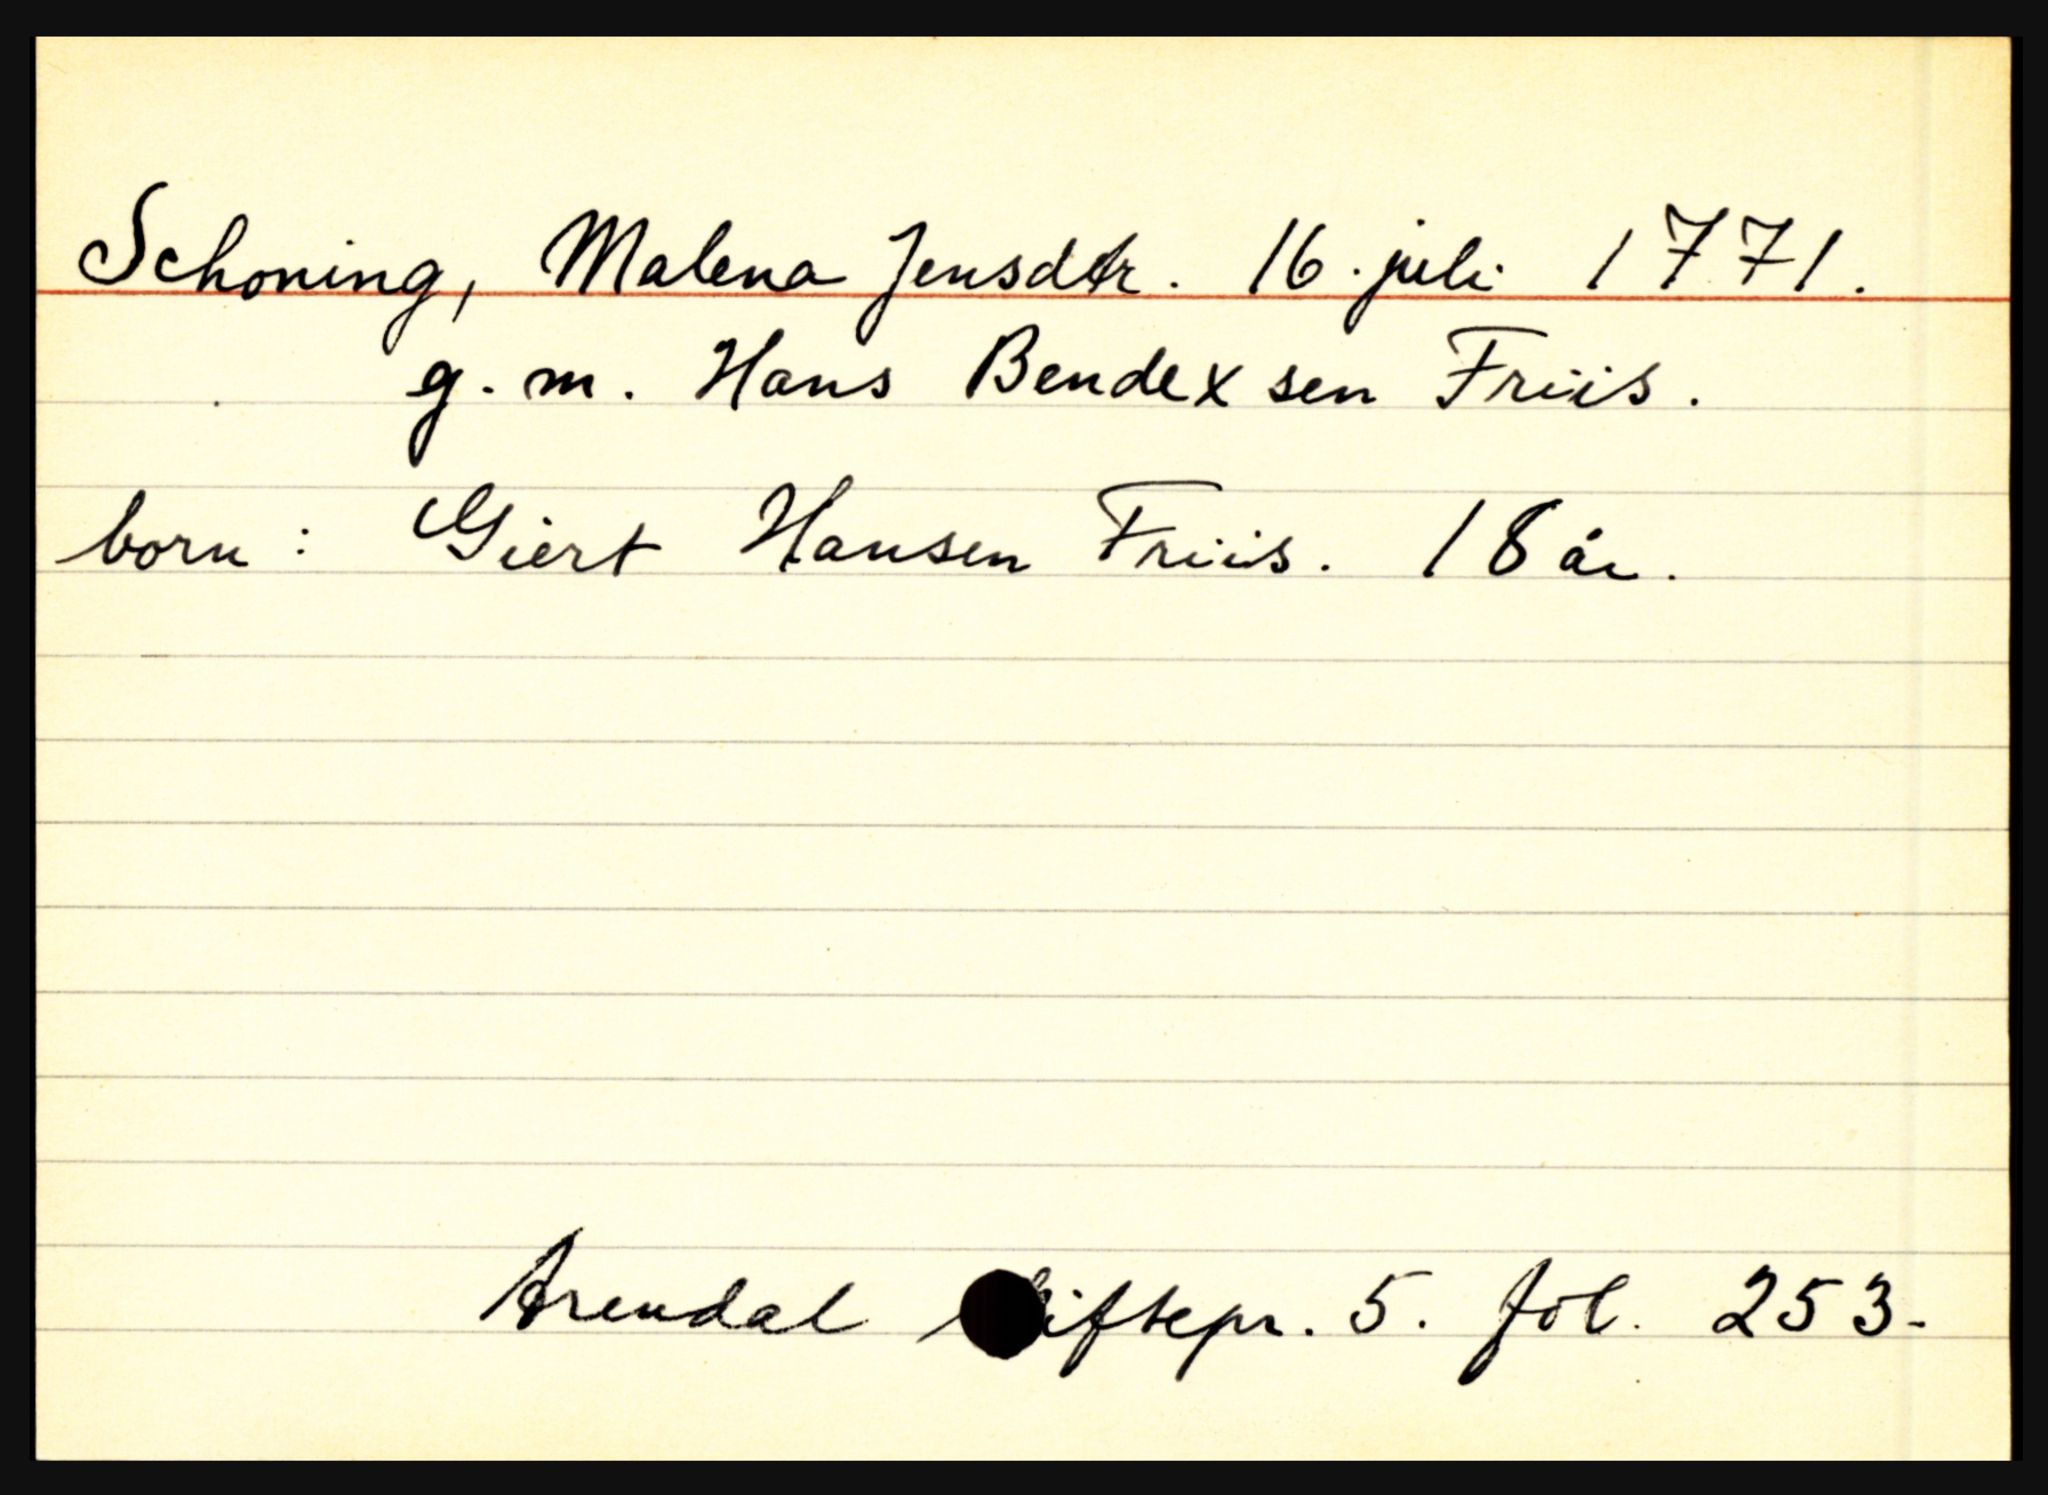 Schoning, Malena Jensdtr. 16. juli 1771.
g. m. Hans Bendexsen Friis.
born: Giert Hansen Friis. 18 år.
Arendal skiftepr. 5. fol. 253.